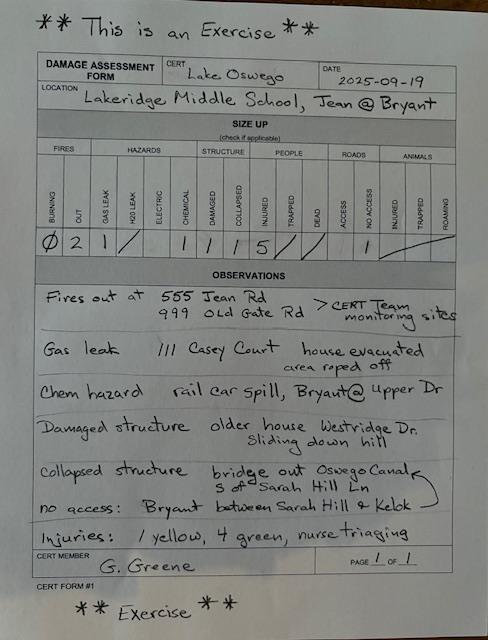 ** This is an Exercise **
DAMAGE ASSESSMENT FORM
CERT
Lake Oswego
DATE
2025-09-19
LOCATION
Lakeridge Middle School, Jean @ Bryant
SIZE UP
(check if applicable)
FIRES HAZARDS STRUCTURE PEOPLE ROADS ANIMALS
BURNING OUT GAS LEAK H20 LEAK ELECTRIC CHEMICAL DAMAGED COLLAPSED INJURED TRAPPED DEAD ACCESS NO ACCESS INJURED TRAPPED ROAMING
Ø 2 1 / 1 1 1 5 / / 1 /
OBSERVATIONS
Fires out at 555 Jean Rd
999 Old Gate Rd > CERT Team
monitoring sites
Gas leak 111 Casey Court house evacuated
area roped off
Chem hazard rail car spill, Bryant @ Upper Dr
Damaged structure older house Westridge Dr.
Sliding down hill
Collapsed structure bridge out Oswego Canal
S of Sarah Hill Ln
no access: Bryant between Sarah Hill & Kelok
Injuries: 1 yellow, 4 green, nurse triaging
CERT MEMBER
G. Greene
PAGE 1 OF 1
CERT FORM #1
** Exercise **